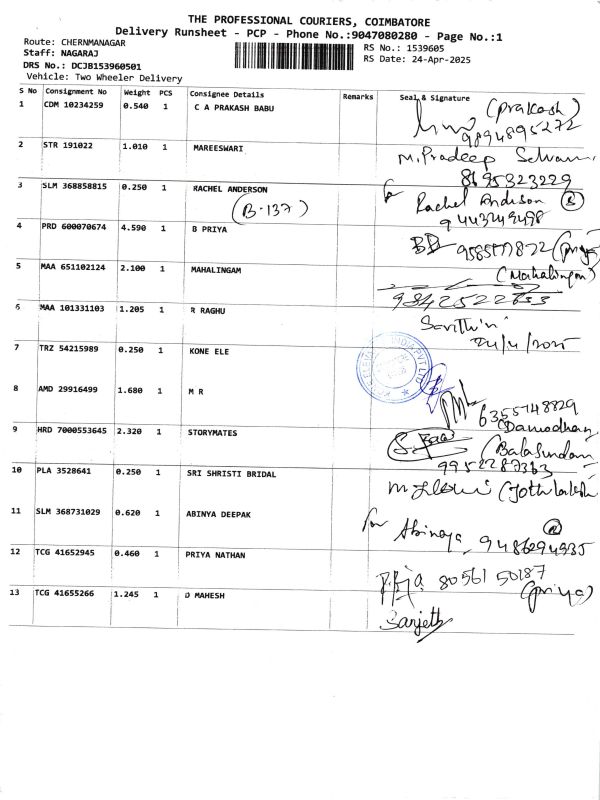 THE PROFESSIONAL COURIERS, COIMBATORE
Delivery Runsheet - PCP - Phone No.:9047080280 - Page No.:1
Route: CHERNMANAGAR
Staff: NAGARAJ
DRS No.: DCJB153960501
Vehicle: Two Wheeler Delivery
RS No.: 1539605
RS Date: 24-Apr-2025
S No Consignment No Weight PCS Consignee Details Remarks Seal & Signature
1 CDM 10234259 0.540 1 C A PRAKASH BABU (Prakash)
9894895272
2 STR 191022 1.010 1 MAREESWARI M. Pradeep Selvam
8695323229
3 SLM 368858815 0.250 1 RACHEL ANDERSON for Rachel Anderson (R)
(B-137)
4 PRD 600070674 4.590 1 B PRIYA
5 MAA 651102124 2.100 1 MAHALINGAM (Mahalingam)
6 MAA 101331103 1.205 1 R RAGHU
24/4/2025
7 TRZ 54215989 0.250 1 KONE ELE
8 AMD 29916499 1.680 1 M R
(Damodharan
9 HRD 7000553645 2.320 1 STORYMATES
9952287363
10 PLA 3528641 0.250 1 SRI SHRISTI BRIDAL
11 SLM 368731029 0.620 1 ABINYA DEEPAK for Abinaya (R)
9486294935
12 TCG 41652945 0.460 1 PRIYA NATHAN 80561 50187
(priya)
13 TCG 41655266 1.245 1 D MAHESH Sanjeth